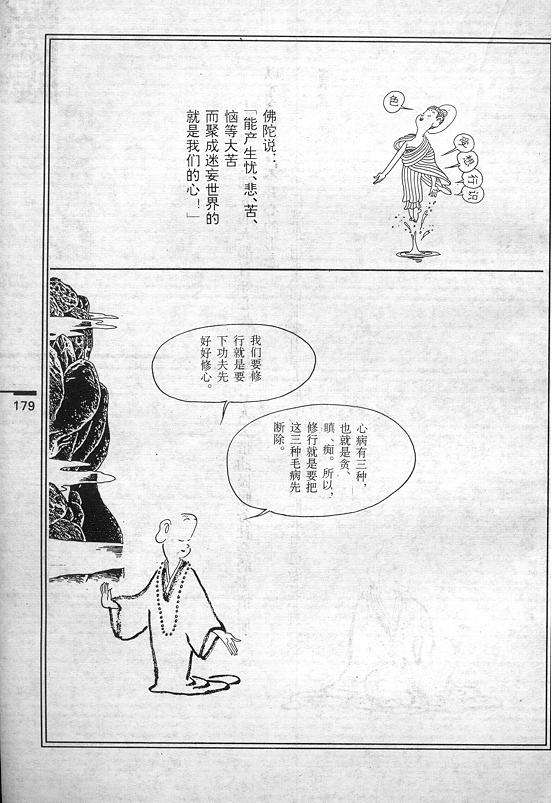 佛陀说：
「能产生忧、悲、苦、
恼等大苦
而聚成迷妄世界的
就是我们的心！」
色
受
想
行
识
我们要修
行就是要
下功夫先
好好修心。
心病有三种，
也就是贪、
瞋、痴。所以，
修行就是要把
这三种毛病先
断除。
179